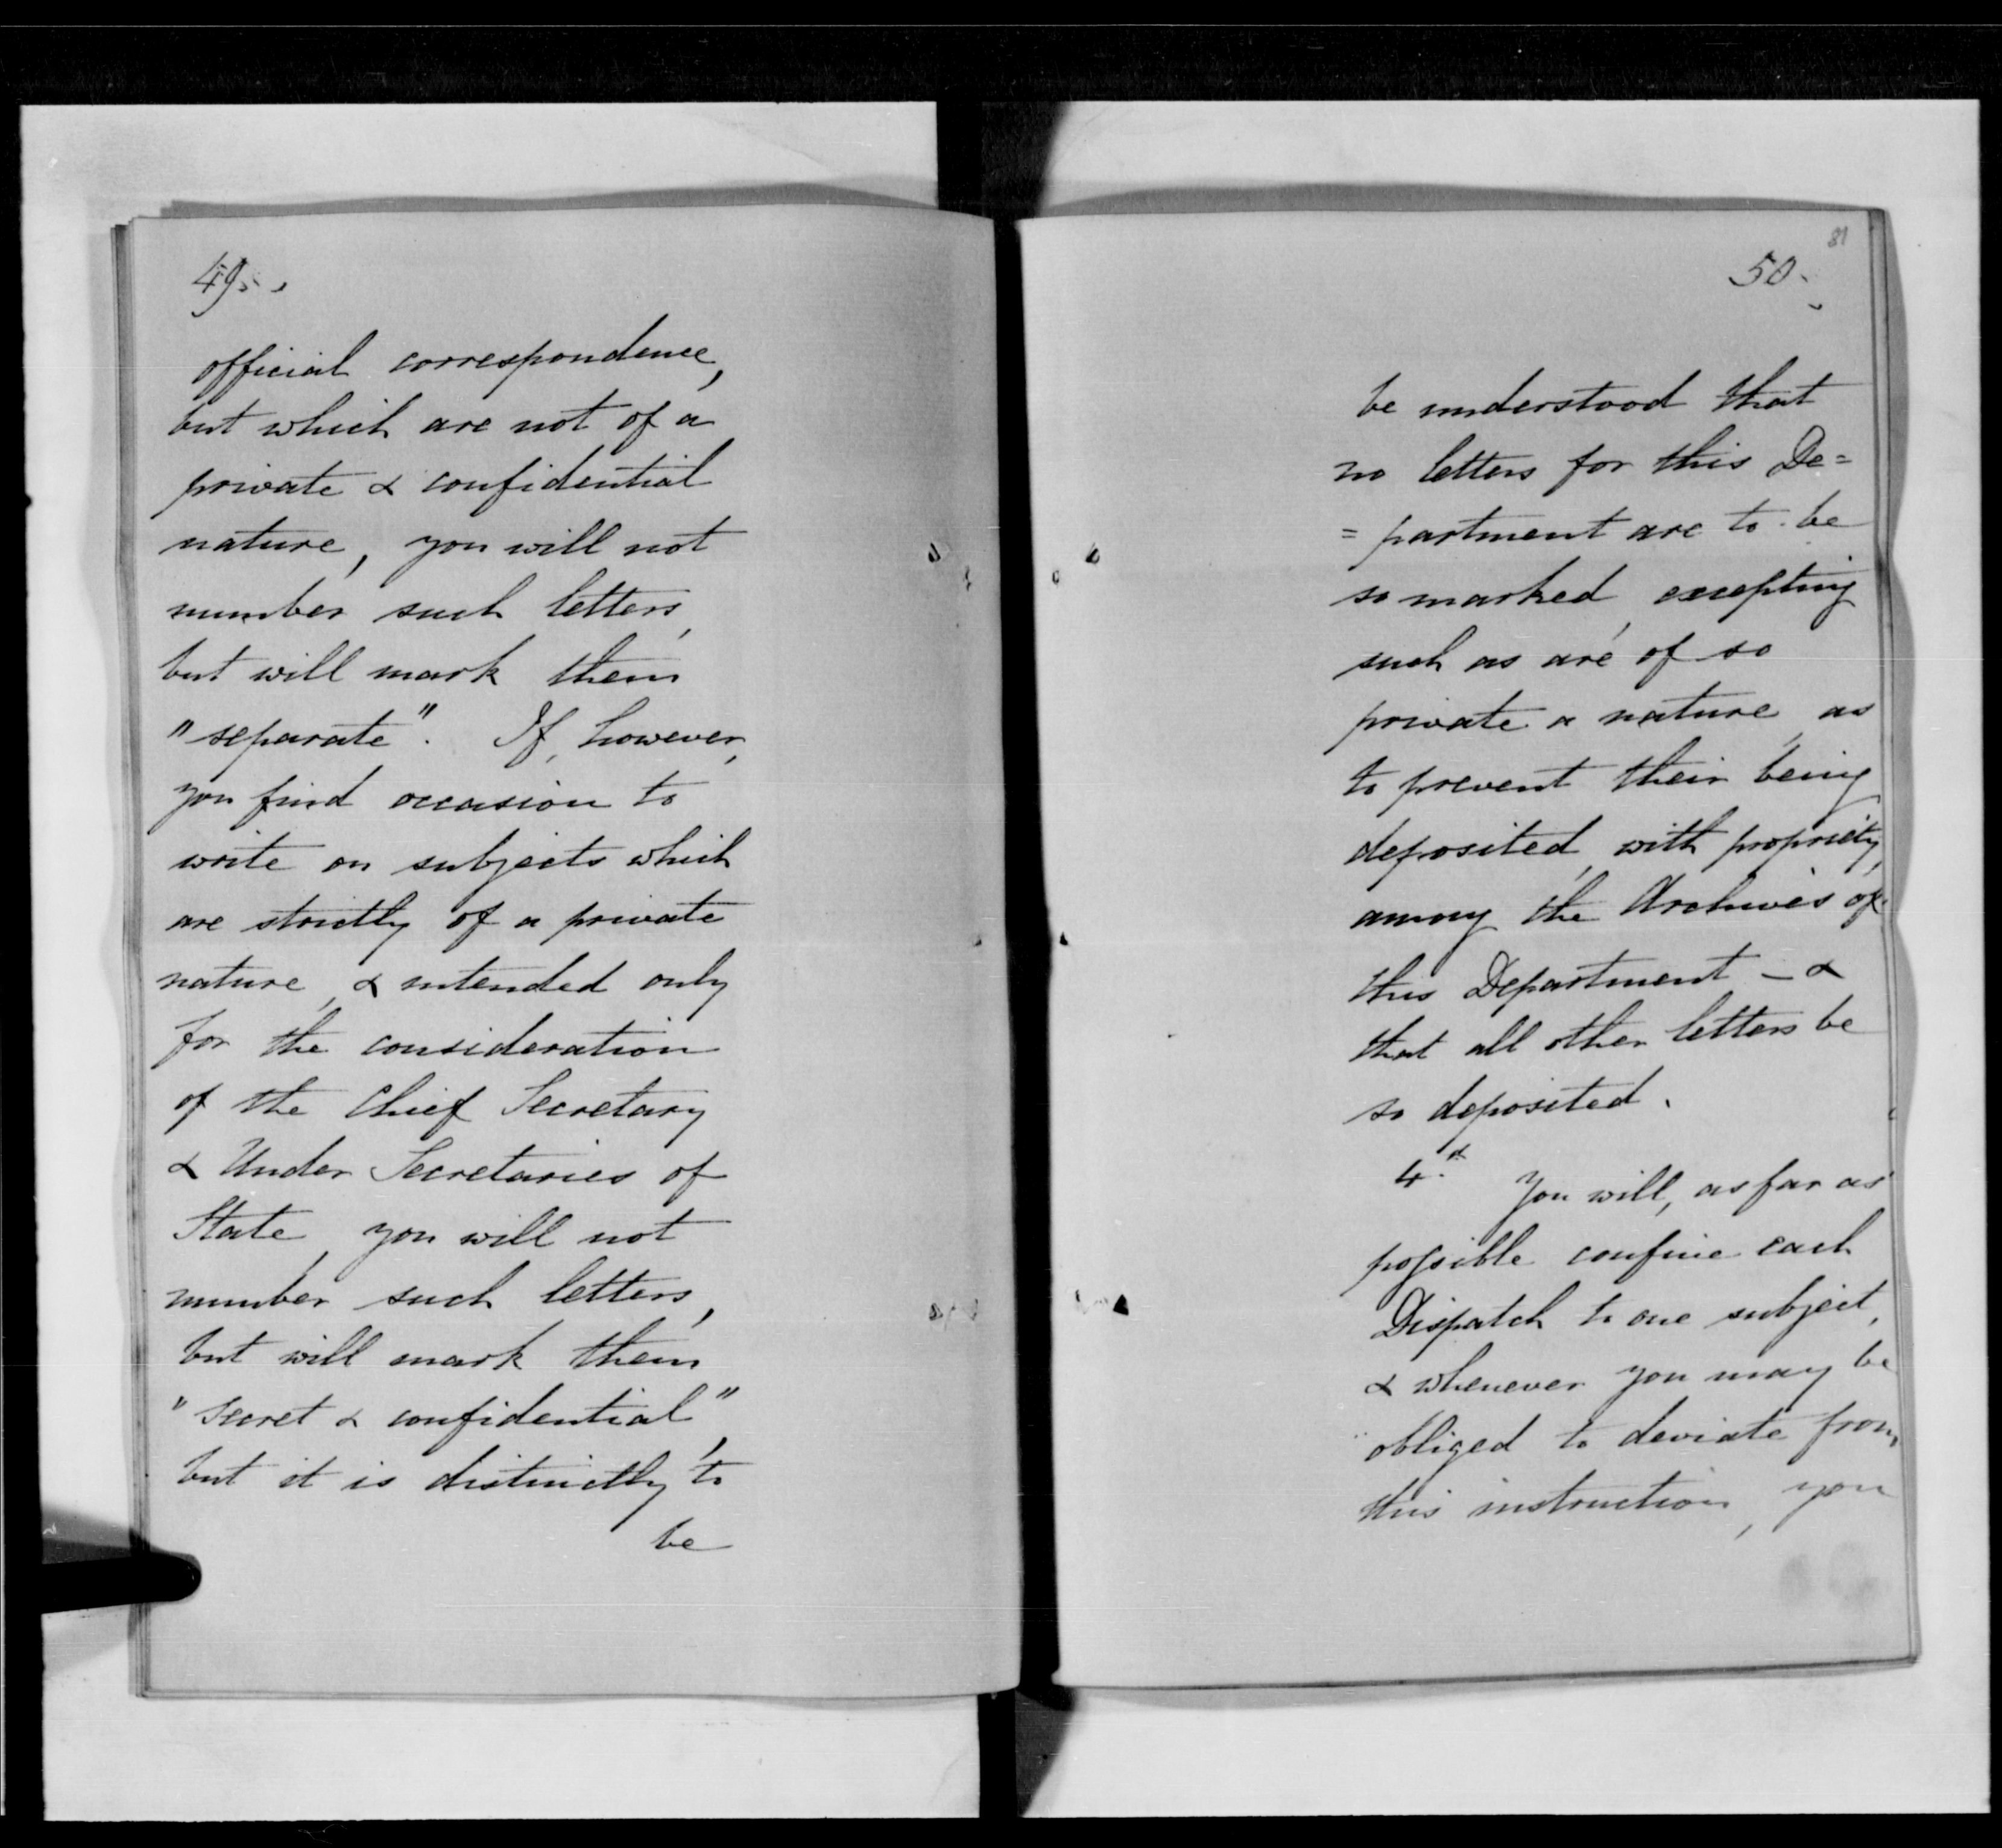 49.
official correspondence,
but which are not of a
private & confidential
nature, you will not
number such letters,
but will mark them
"separate". If, however,
you find occasion to
write on subjects which
are strictly of a private
nature, & intended only
for the consideration
of the Chief Secretary
& Under Secretaries of
State, you will not
number such letters,
but will mark them
"secret & confidential",
but it is distinctly to
be
81
50.
be understood that
no letters for this De=
=partment are to be
so marked, excepting
such as are of so
private a nature, as
to prevent their being
deposited, with propriety,
among the Archives of
this Department — &
that all other letters be
so deposited.
4. You will, as far as
possible confine each
Dispatch to one subject,
& whenever you may be
obliged to deviate from
this instruction, you